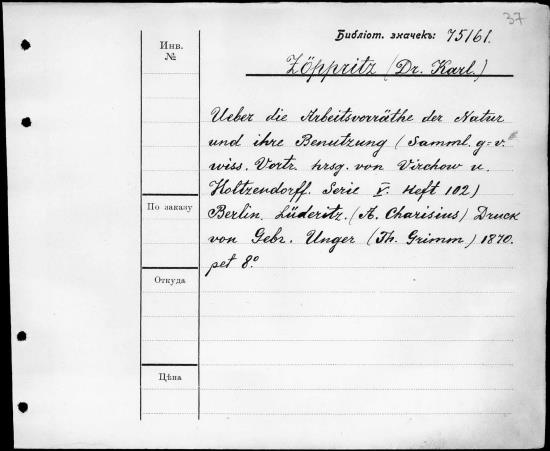 37
Библіот. значекъ: 75161.
Инв.
№
Zöppritz (Dr. Karl.)
Ueber die Arbeitsvorräthe der Natur
und ihre Benutzung (Samml. g=v.
wiss. Vortr. hrsg. von Virchow u.
Holtzendorff. Serie V. Heft 102)
По заказу
Berlin. Lüderitz. (A. Charisius) Druck
von Gebr. Unger (Th. Grimm.) 1870.
pet 8.º
Откуда
Цѣна